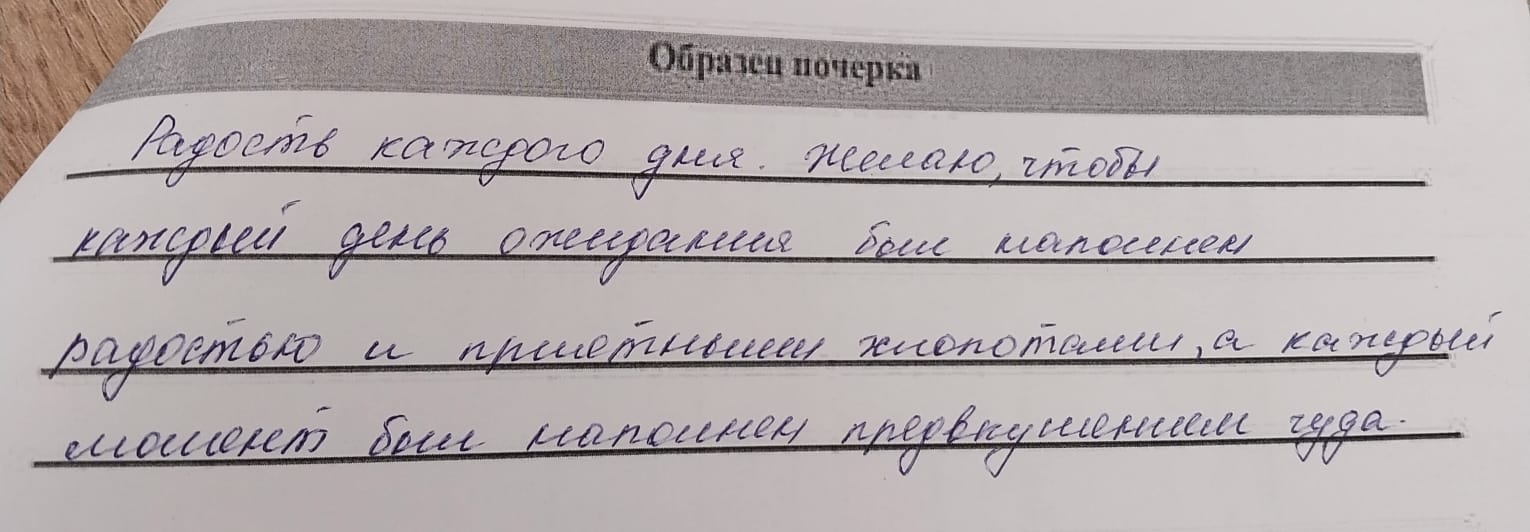 Образец почерка
Радость каждого дня. Желаю, чтобы
каждый день ожидания был наполнен
радостью и приятными хлопотами, а каждый
момент был наполнен предвкушением чуда.